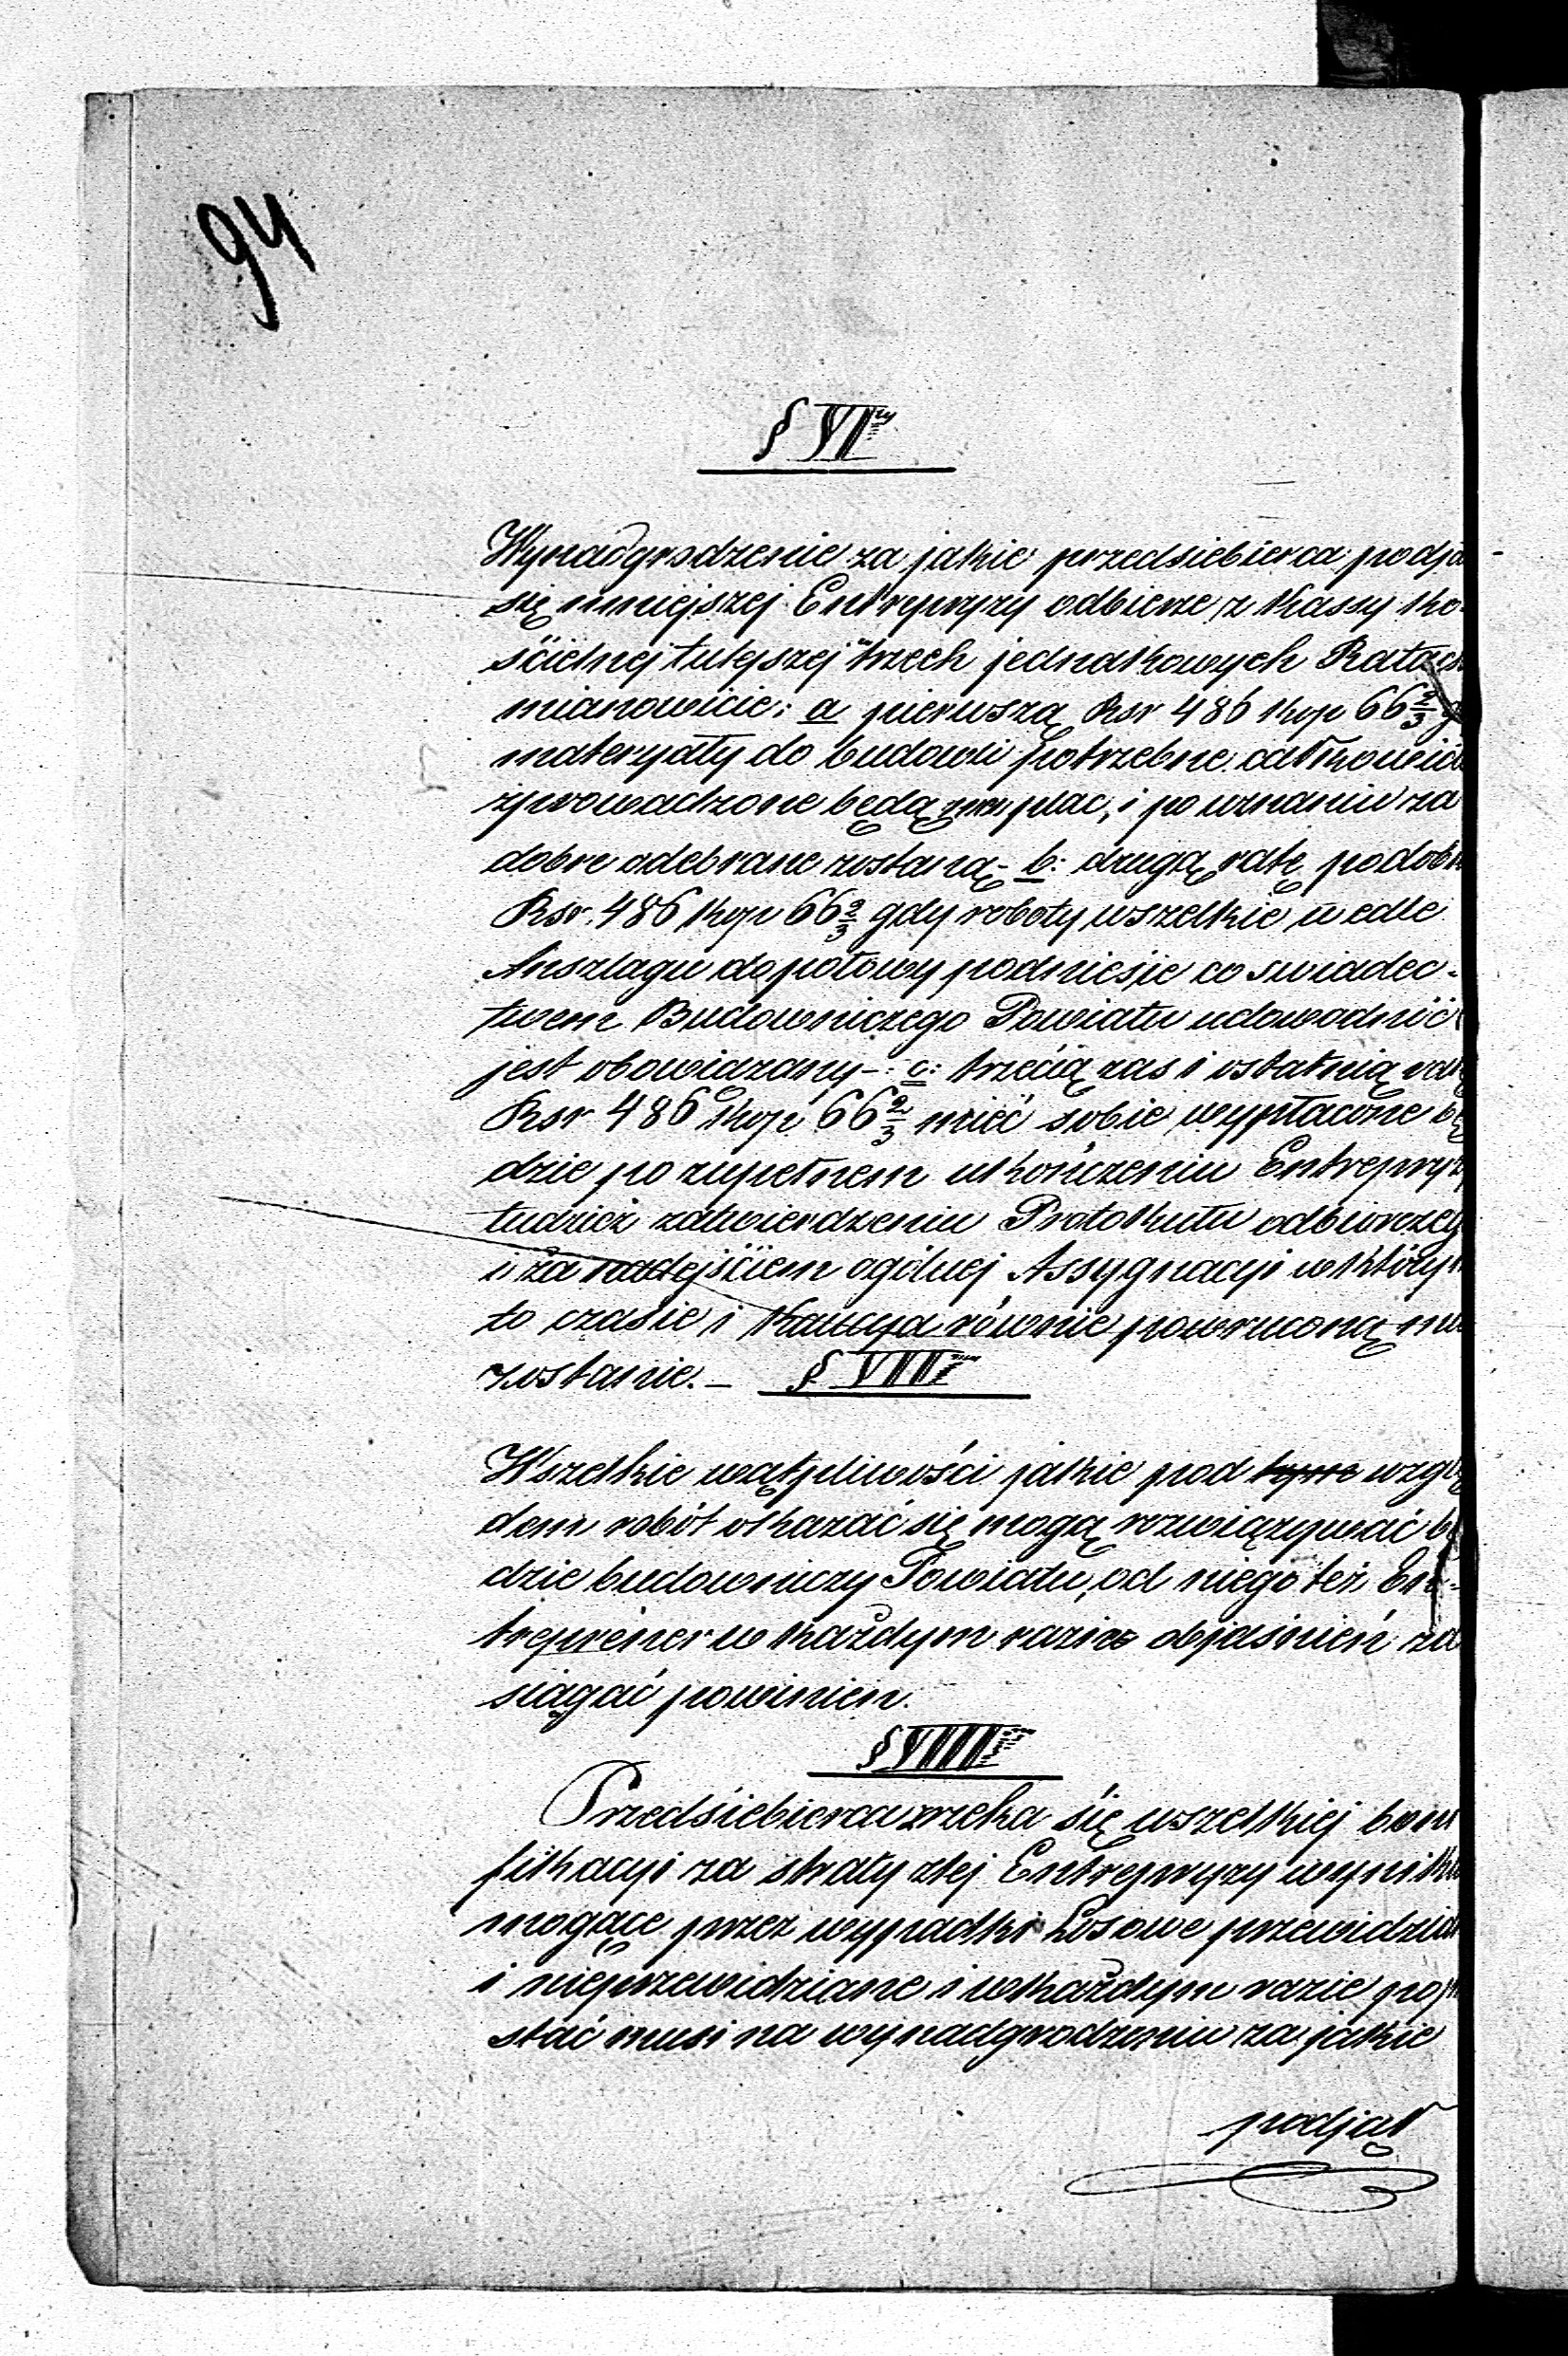 94
§ VI
Wynadgrodzenie za jakie przedsiebierca podją
się ninniejszej Entrepryzy odbierze z Kassy Ko
ścielnej tutejszej w trzech jednakowych Ratach
mianowicie: a pierwszą Rsr 486 kop 66 2/3 g
materyały do budowli potrzebne całkowici
zprowadzone będą na plac, i po uznaniu za
dobre odebrane zostaną - b: drugą ratę podobn
Rsr. 486 kop 66 2/3 gdy roboty wszelkie wedle
Anszlagu do połowy podniesie co swiadec-
twem Budowniczego Powiatu udowodnić
jest obowiązany - c: trzecią zas i ostatnią ra
Rsr 486 kop 66 2/3 mieć sobie wypłacone bę
dzie po zupełnem ukończeniu Entrepryz
tudzież zatwierdzeniu Protokułu odbiorczeg
i za nadejściem ogólnej Assygnacyi w który
to czasie i Kaucya równie powrucona mu
zostanie. - § VII
Wszelkie wątpliwości jakie pod wzglę
dem robót okazać się mogą rozwiązywać bę
dzie budowniczy Powiatu, od niego też En-
trepréner w każdym razie objaśnień za
siągać powinien.
§ VIII
Przedsiebierca zrzeka się wszelkiej bon
fikacyi za straty z tej Entrepryzy wynikn
mogące przez wypadki Losowe przewidzia
i nieprzewidziane i w każdym razie pop
stać musi na wynadgrodzeniu za jakie
podjął